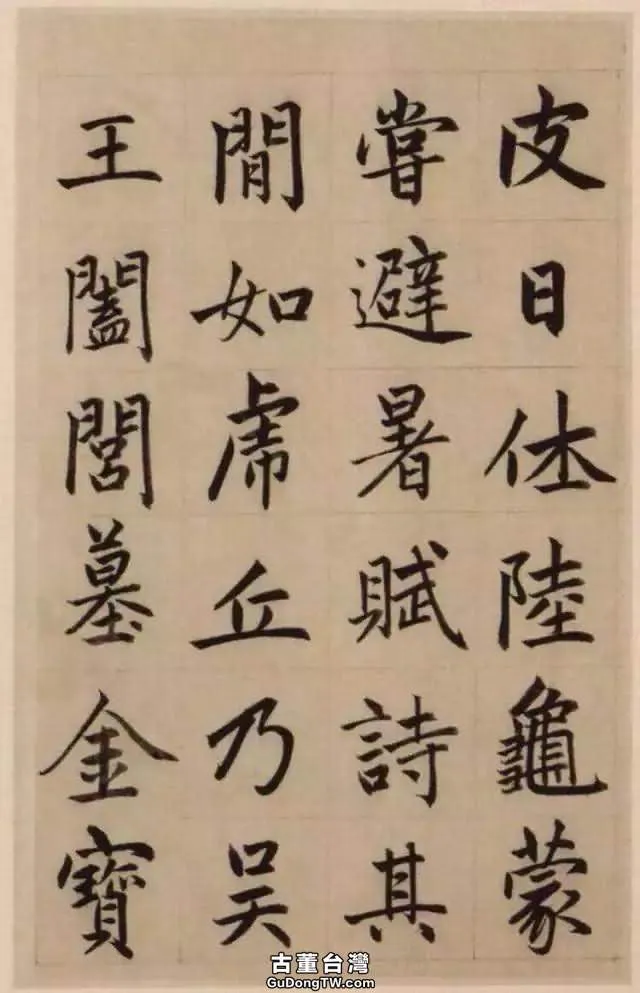 皮日休陸龜蒙
嘗避暑賦詩其
閒如虎丘乃吳
王闔閭墓金寶
古董台灣
GuDongTW.com